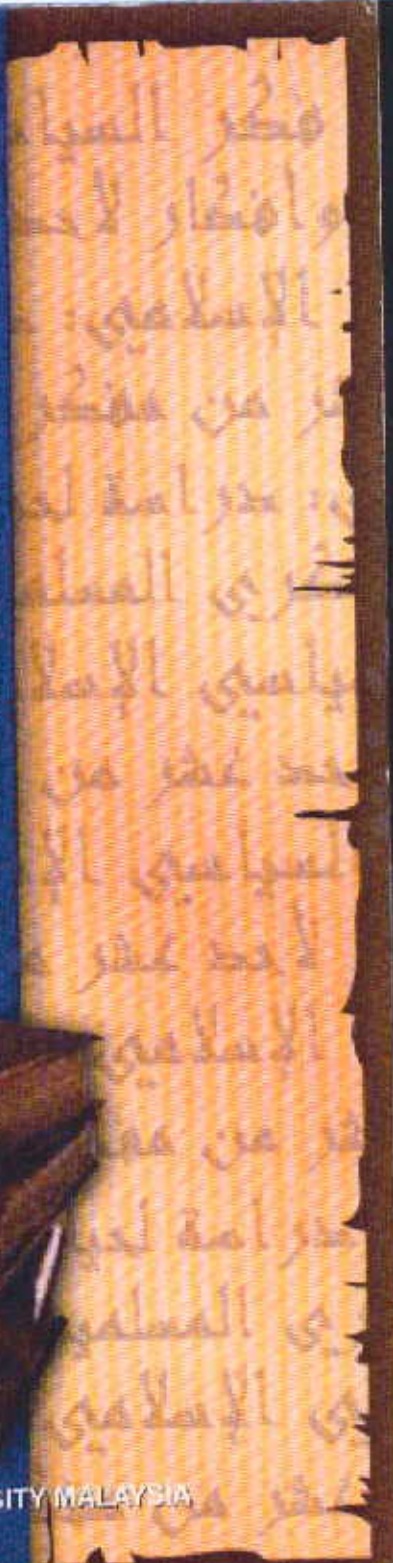 فكر السيا
وافكار لاحد
الإسلامي:
ر من مفكر
: دراسة لحي
كري المسلم
ياسي الإسلا
حد عشر من
لسياسي الإ
لاحد عشر م
الإسلامي
شر من مف
دراسة لحيا
ري المسلمي
ي الإسلامي
عشر من
SITY MALAYSIA